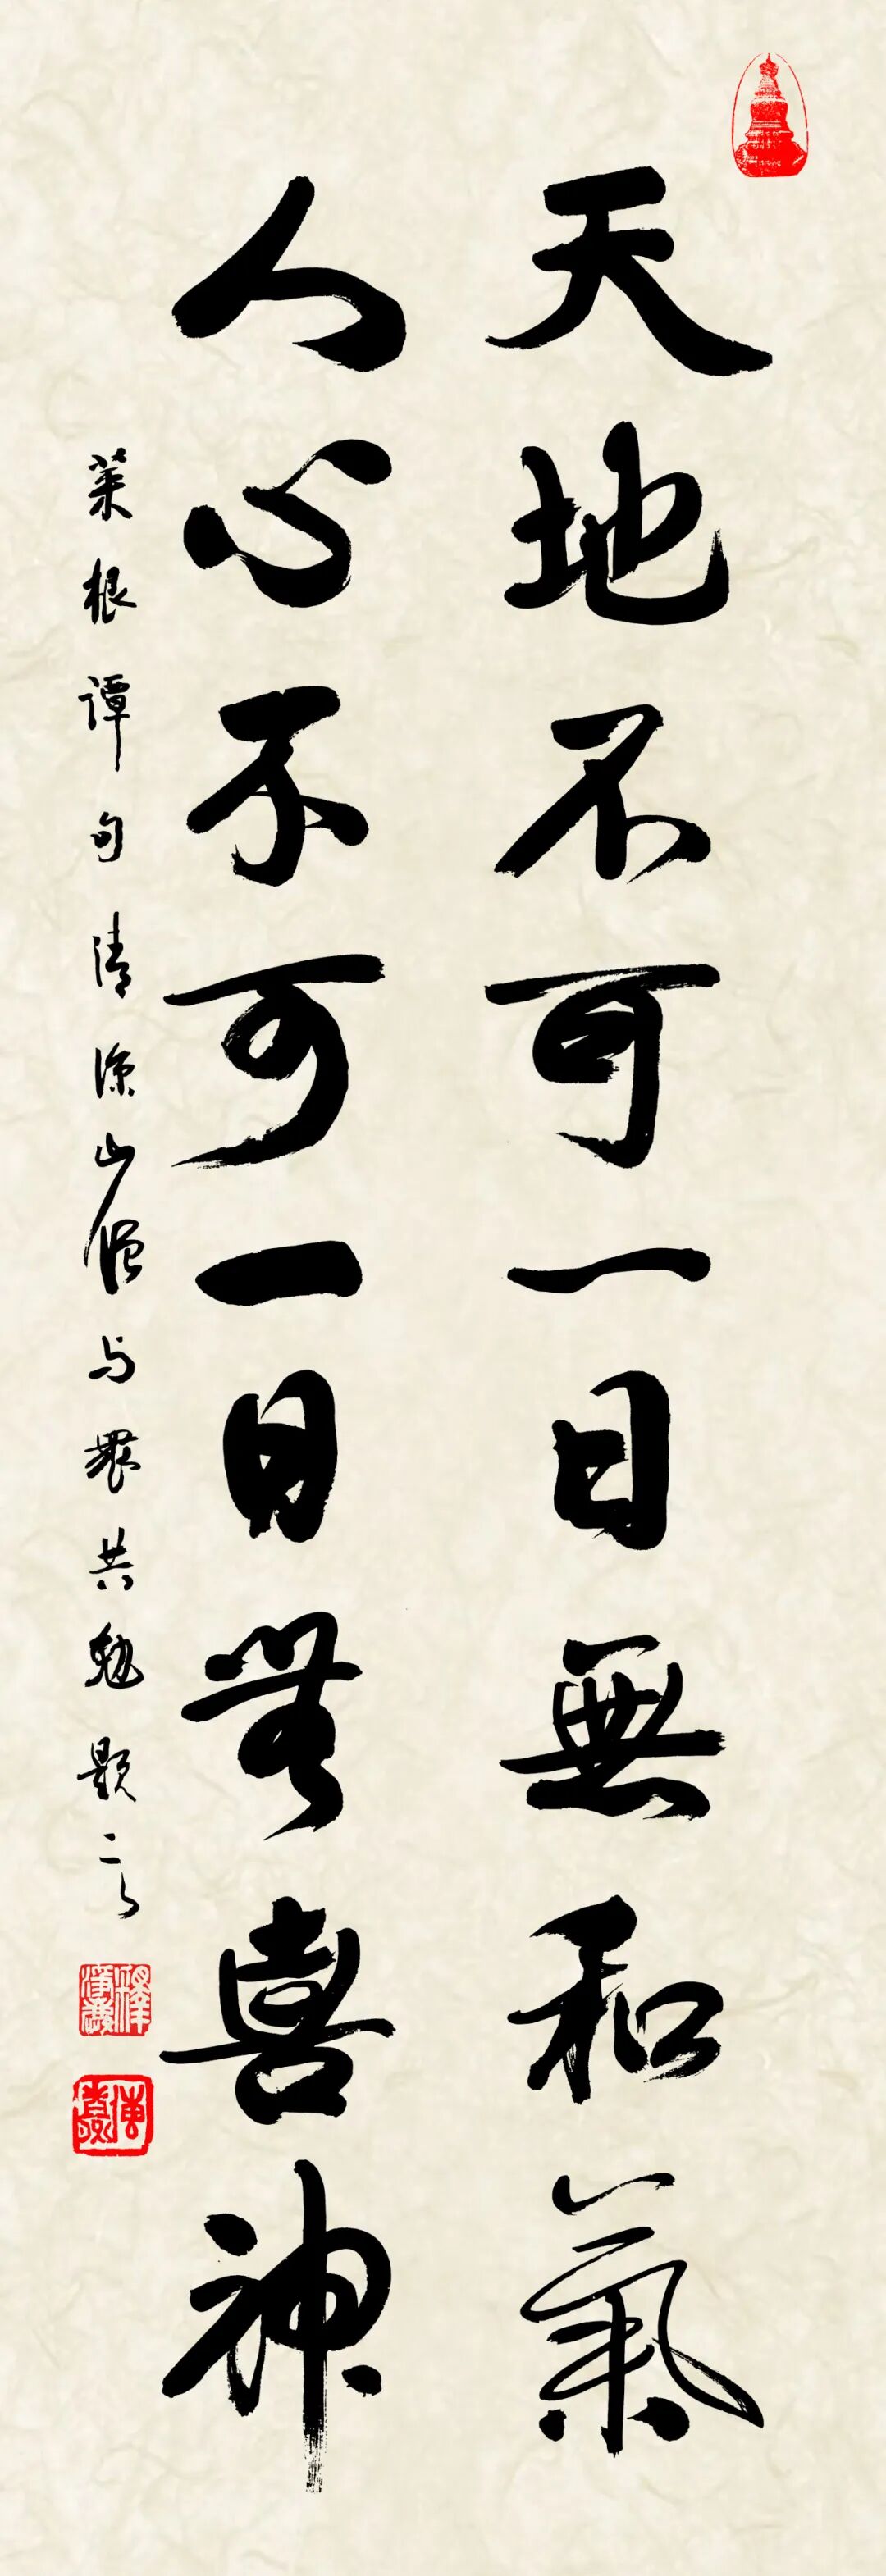 天地不可一日無和氣
人心不可一日無喜神
菜根谭句清凉山僧与眾共勉题二之